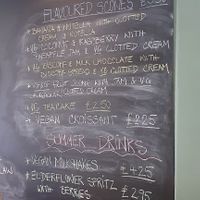 FLAVOURED SCONES £3.50
BANANA & NUTELLA WITH CLOTTED
CREAM & NUTELLA
VG COCONUT & RASPBERRY WITH
JAM & VG CLOTTED CREAM
VG BISCOFF & MILK CHOCOLATE WITH
BISCOFF SPREAD & VG CLOTTED CREAM
FRUIT SCONE WITH JAM & VG
CLOTTED CREAM
VG TEACAKE £2.50
VEGAN CROISSANT £2.25
SUMMER DRINKS
VEGAN MILKSHAKES £4.25
ELDERFLOWER SPRITZ £2.95
WITH BERRIES